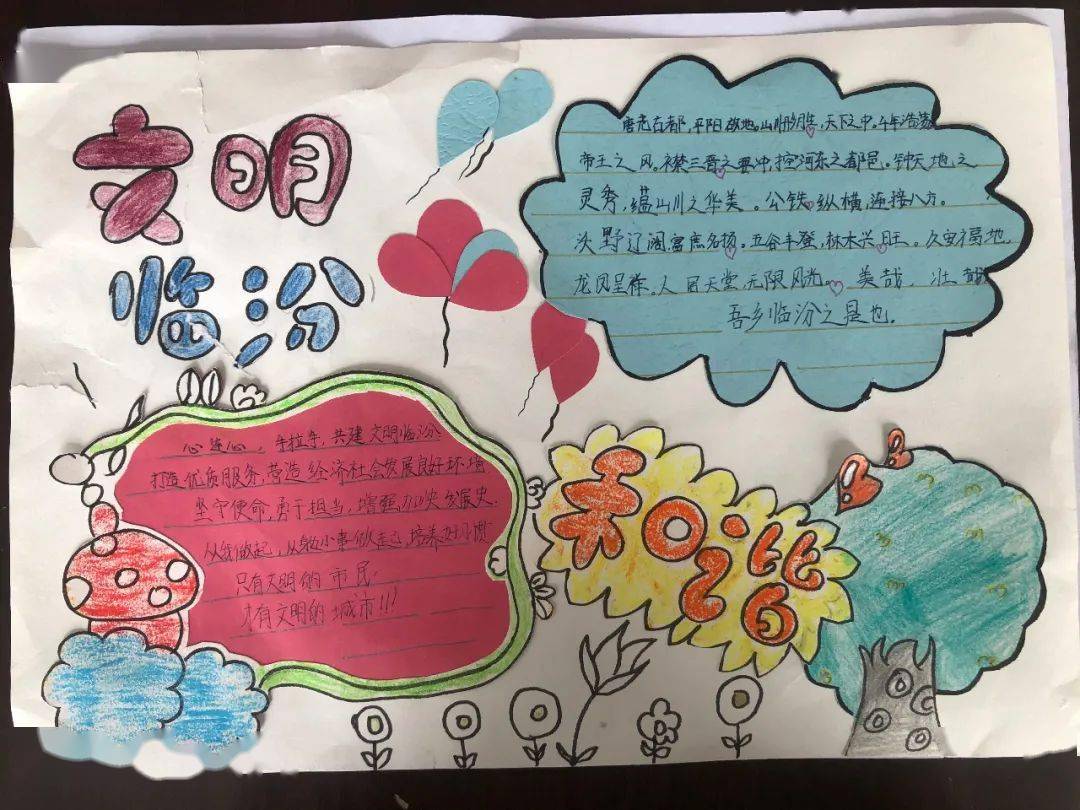 文明
临汾
唐尧古都,平阳故地。山川形胜,天下之中。千年浩荡
帝王之风。襟三晋之要冲,控河东之都邑。钟天地之
灵秀,蕴山川之华美。公铁纵横,连接八方。
沃野辽阔富庶名扬。五谷丰登,林木兴旺。久安福地,
龙凤呈祥。人居天堂,无限风光。美哉,壮哉
吾乡临汾之是也.
心连心,手拉手,共建文明临汾
打造优质服务,营造经济社会发展良好环境
坚守使命,勇于担当,发展史.
从我做起,从小事做起,培养好习惯
只有文明的市民
才有文明的城市!!!
和谐